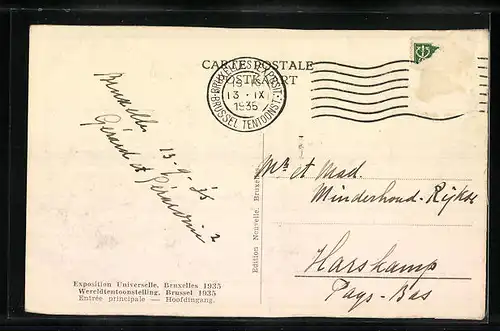 CARTE POSTALE
POSTKAART
BRUXELLES EXPOSIT.
13 IX
1935
BRUSSEL TENTOONST.
Bruxelles
Gérard et
Mr et Mad.
Minderhoud-Rijkse
Harskamp
Pays-Bas
Edition Nouvelle, Bruxelles
Exposition Universelle, Bruxelles 1935
Wereldtentoonstelling, Brussel 1935
Entrée principale — Hoofdingang.